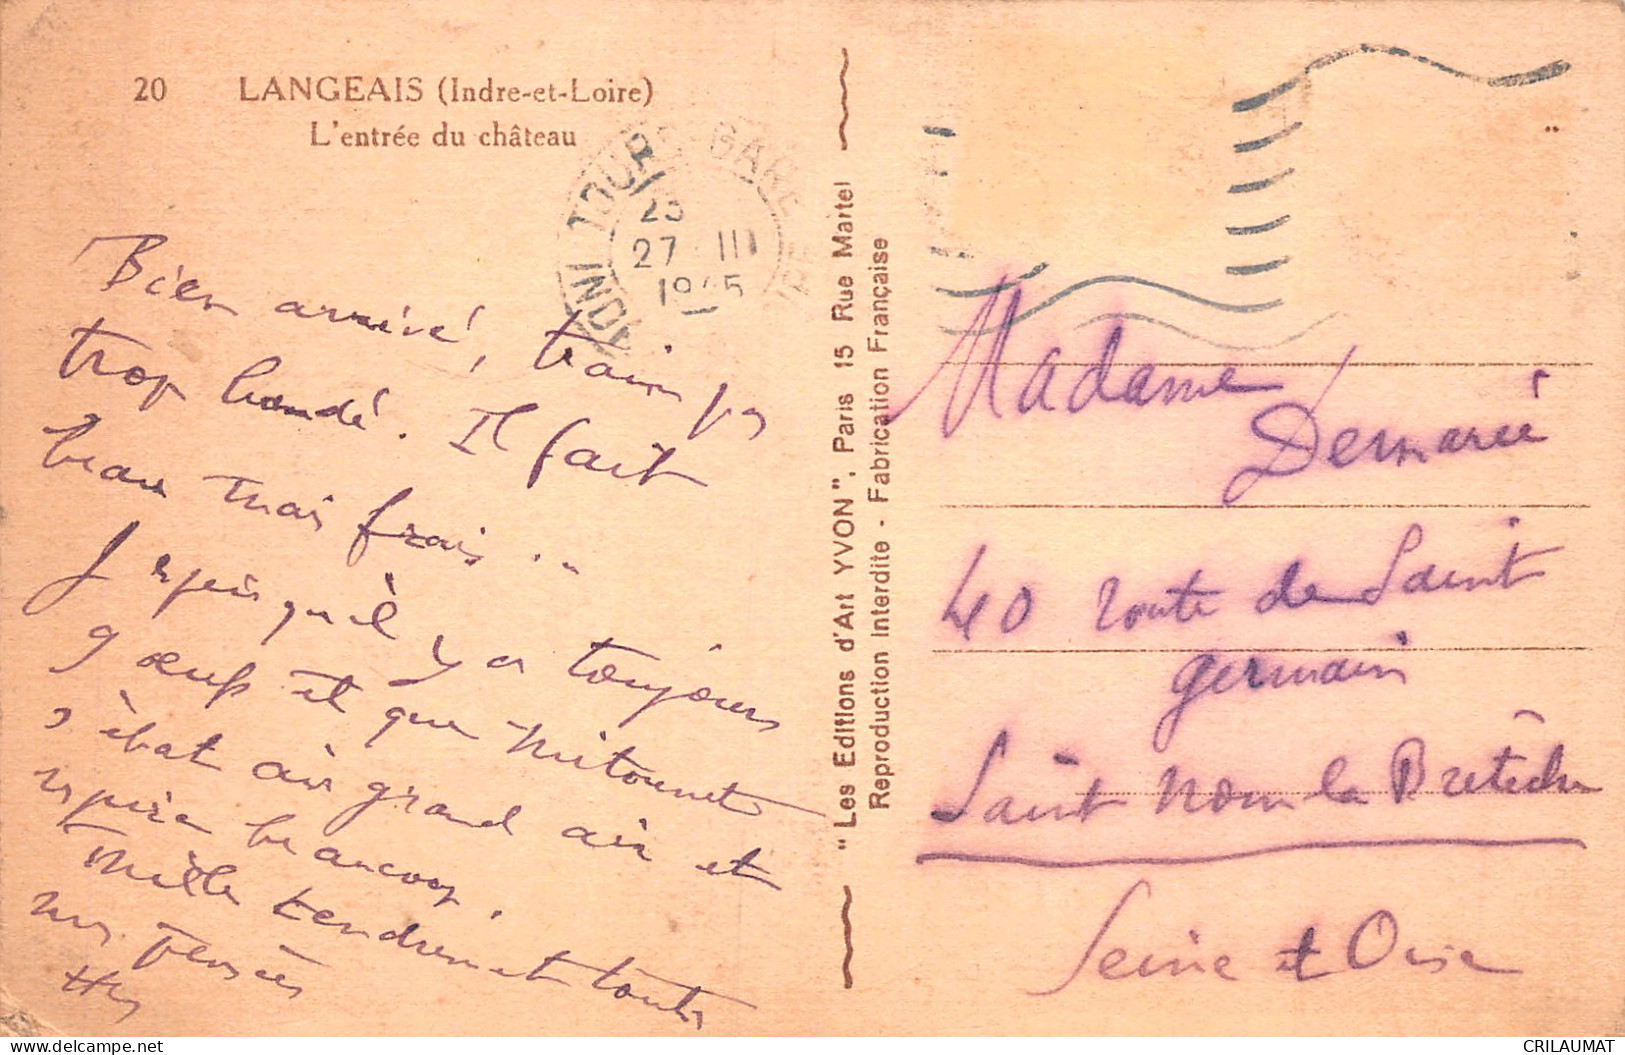 20 LANGEAIS (Indre-et-Loire)
L'entrée du château
TOURS GARE
27 III
INDRE
Bien arrivé, train pas
trop bondé. Il fait
beau mais frais ..
J'espère qu'il y a toujours
et que
s'ébat au grand air et
respire beaucoup.
Mille tendresses et toutes
mes pensées
"Les Editions d'Art YVON", Paris 15 Rue Martel
Reproduction Interdite - Fabrication Française
Madame
Demarié
40 route de Saint
germain
Saint nom la Bretèche
Seine et Oise
CRILAUMAT